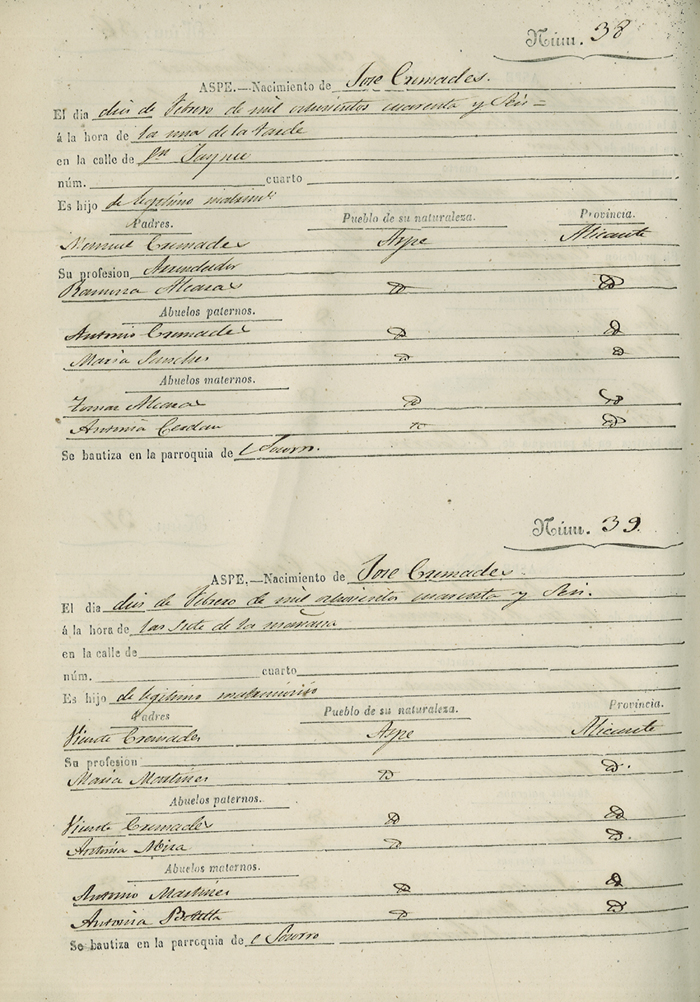 Núm. 38
ASPE.—Nacimiento de Jose Cremades.
El dia dies de Febrero de mil ochosientos cuarenta y Seis=
á la hora de la una de la tarde
en la calle de Dn Jayme
núm. cuarto
Es hijo de legitimo matrimo
Padres. Pueblo de su naturaleza. Provincia.
Manuel Cremades Aspe Alicante
Su profesion Arrendador
Ramona Alcaras
Abuelos paternos.
Antonio Cremades
Maria Sanches
Abuelos maternos.
Tomas Alcaras
Antonia Cerdan
Se bautiza en la parroquia de l Socorro.
Núm. 39
ASPE.—Nacimiento de Jose Cremades.
El dia dies de Febrero de mil ochosientos cuarenta y Seis.
á la hora de las siete de la mañana
en la calle de
núm. cuarto
Es hijo de legitimo matrimonio
Padres Pueblo de su naturaleza. Provincia.
Visente Cremades Aspe Alicante
Su profesion
Maria Martines
Abuelos paternos.
Visente Cremades
Antonia Mira
Abuelos maternos.
Antonio Martines
Antonia Botella
Se bautiza en la parroquia de l Socorro